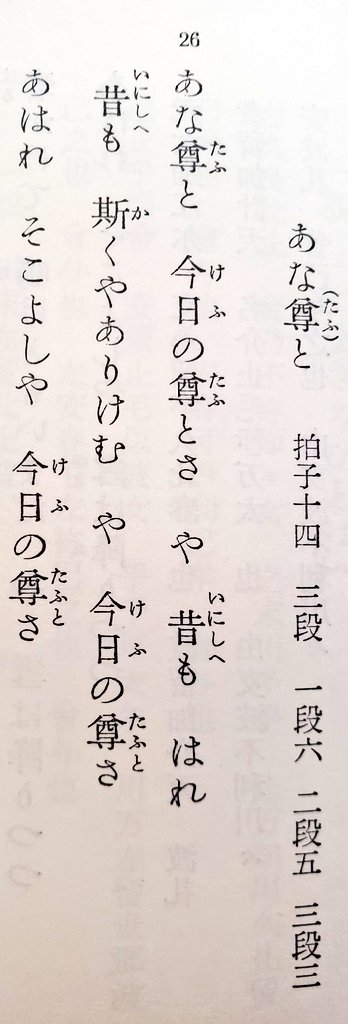 26
あな尊(たふ)と　拍子十四　三段　一段六　二段五　三段三
あな尊たふと　今日けふの尊たふとさ　や　昔いにしへも　はれ
昔いにしへも　斯かくやありけむ　や　今日けふの尊たふとさ
あはれ　そこよしや　今日けふの尊たふとさ